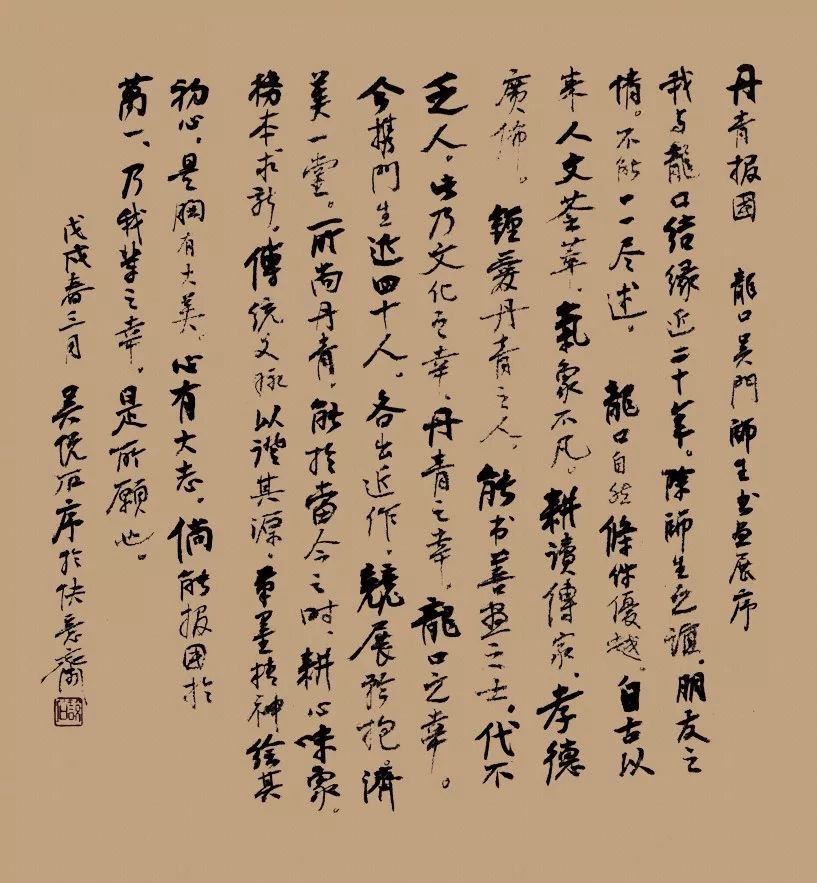 丹青报國　龍口吴門師生书画展序
我与龍口结缘近二十年。除師生之誼，朋友之
情。不能一一尽述。龍口自然條件優越，自古以
来人文荟萃，氣象不凡。耕讀傳家，孝德
廣佈。鍾愛丹青之人，能书善畫之士，代不
乏人，此乃文化之幸，丹青之幸，龍口之幸。
今携門生近四十人，各出近作，競展於抱，濟
美一堂。所尚丹青，能於當今之时，耕心味象。
務本求新，傳统文脈以證其源，筆墨精神绘其
初心，是胸有大美，心有大志，倘能报國於
萬一、乃我輩之幸，是所願也。
戊戌春三月　吴悦石序於快意齋